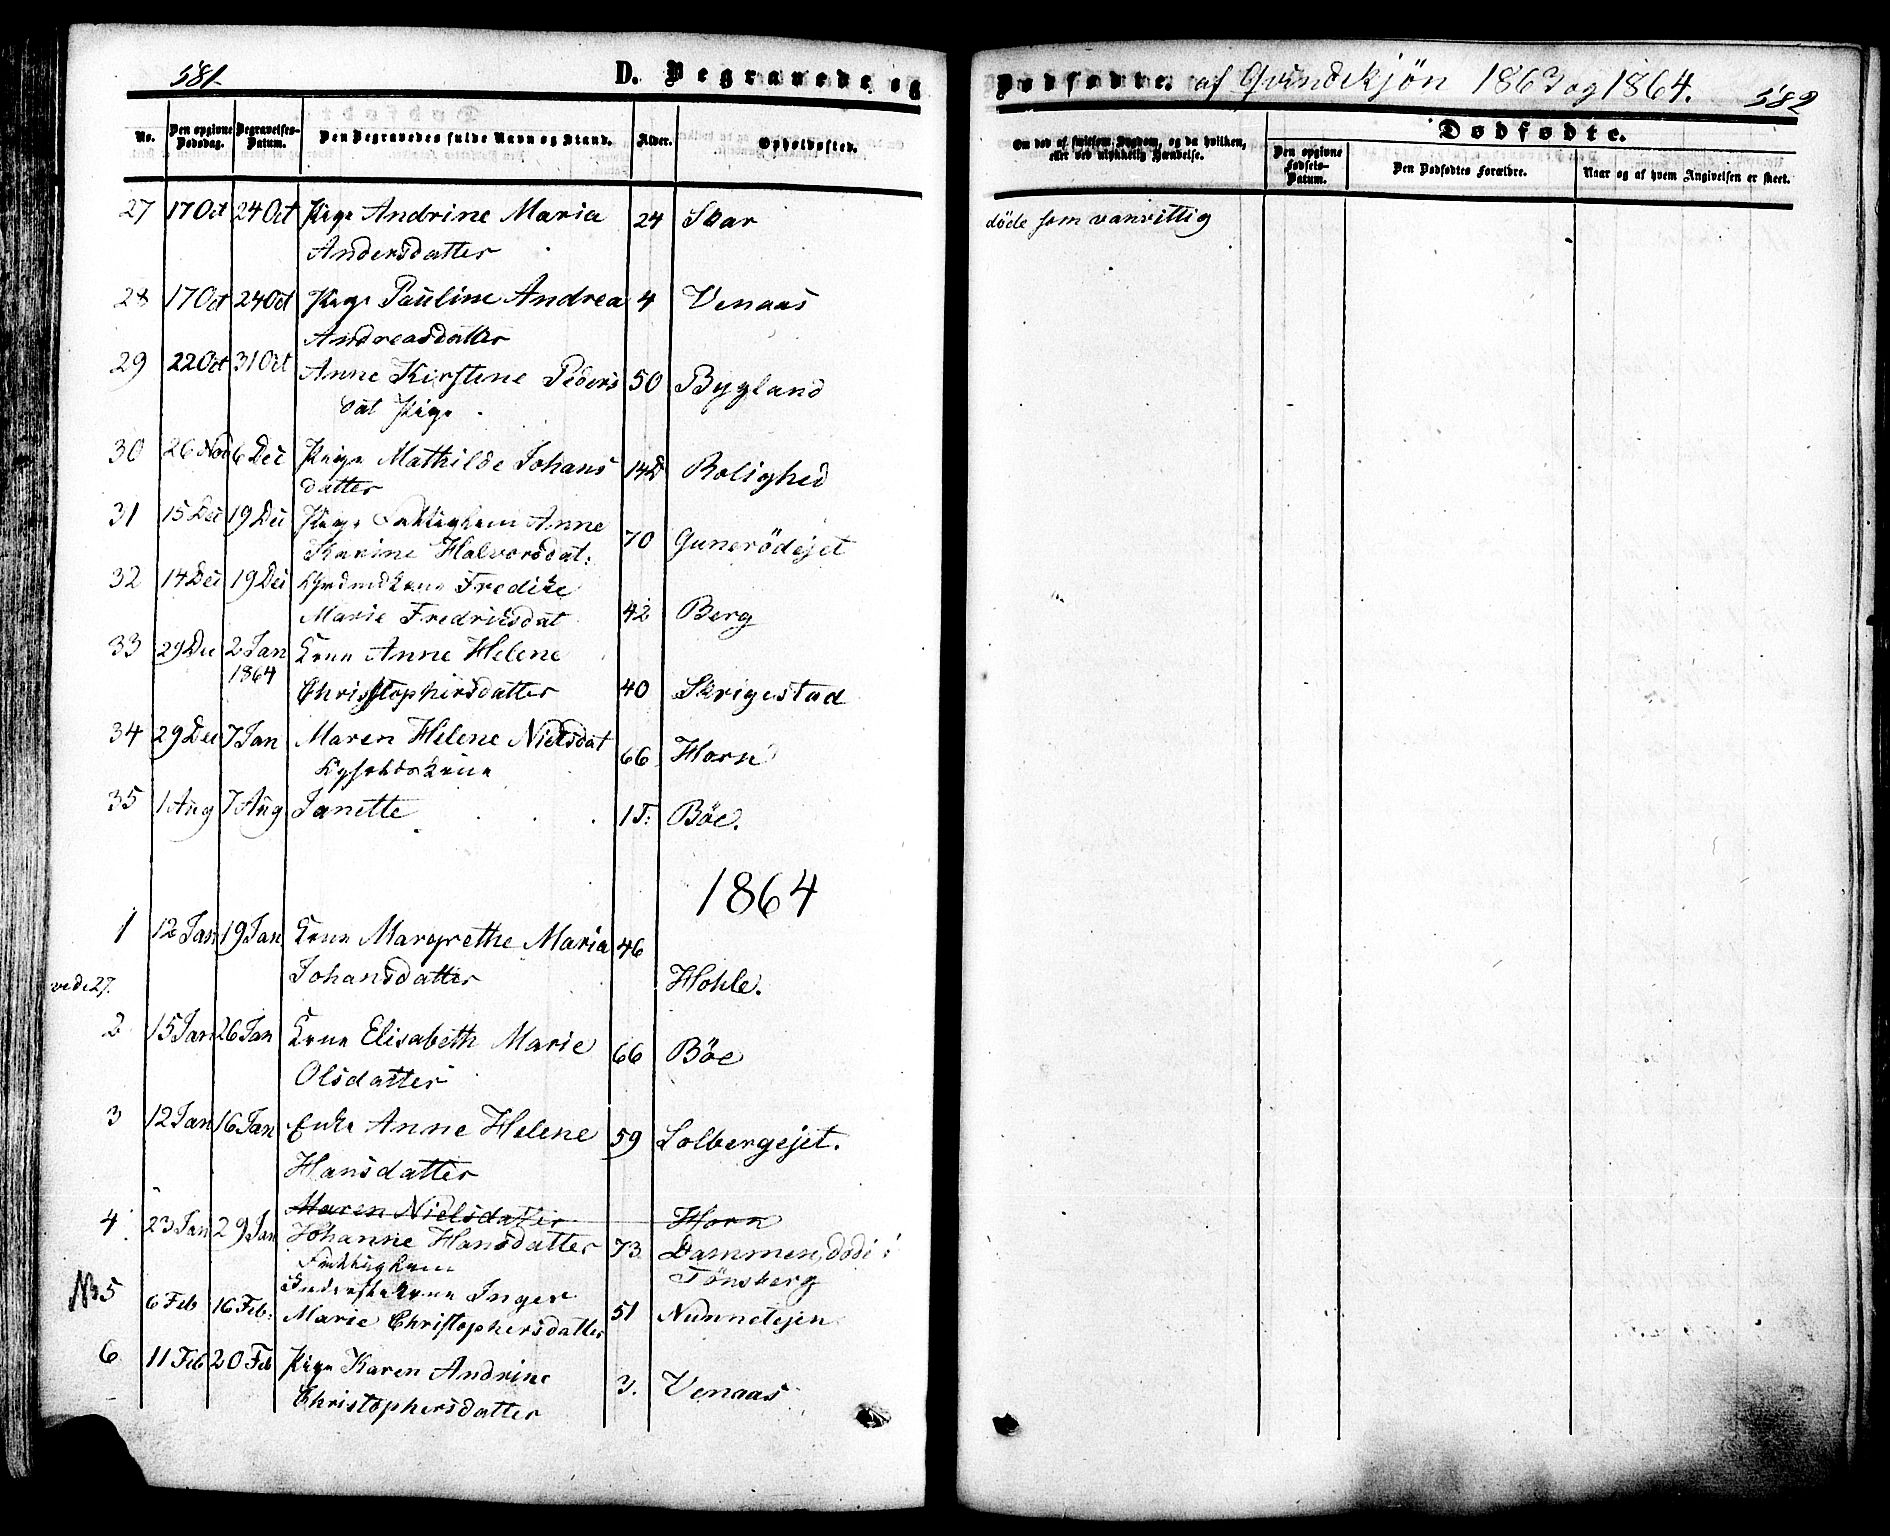 581.
D. Begravede og
No.
Den opgivne Dødsdag.
Begravelses-Datum.
Den Begravedes fulde Navn og Stand.
Alder.
Opholdssted.
27 17 Oct 24 Oct Pige Andrine Maria 24 Skar
Andersdatter
28 17 Oct 24 Oct Pige Pauline Andrea 4 Venaas
Andreasdatter
29 22 Oct 31 Oct Anne Kirstine Peders 50 Bygland
dat Pige
30 26 Nov 6 Dec Pige Mathilde Johans 14 D Rolighed
datter
31 15 Dec 19 Dec Pige Anne
Karine Halvorsdat: 70 Gunerödejet
32 14 Dec 19 Dec Fredike
Marie Fredriksdat 42 Berg
33 29 Dec 2 Jan Kone Anne Helene
1864
Christophersdatter 40 Skrigestad
34 29 Dec 7 Jan Maren Helene Nielsdat 66 Horn
35 1 Aug 7 Aug Janette 1 T: Böe.
1864
1 12 Jan 19 Jan Kone Margrethe Maria 46
Johansdatter Hohle.
vede 27.
2 15 Jan 26 Jan Kone Elisabeth Marie 66 Böe
Olsdatter
3 12 Jan 16 Jan Enke Anne Helene 59 Solbergejet.
Hansdatter
Maren Nielsdatter Horn
4 23 Jan 29 Jan Johanne Hansdatter 73 Dammen, dödi i
Fattiglem Tönsberg
No 5 Inderstekone Inger
6 Feb 16 Feb: Marie Christophersdatter 51 Nunnetejen
6 11 Feb 20 Feb Pige Karen Andrine 3. Venaas
Christophersdatter
Dødfødte. af Qvindekjön 1863 og 1864. 582
Om død af smitsom Sygdom, og da hvilken,
eller ved ulykkelig Hændelse.
Dødfødte.
Den opgivne Fødsels-Datum.
Den Dødfødtes Forældre.
Naar og af hvem Angivelsen er skeet.
döde som vanvittig